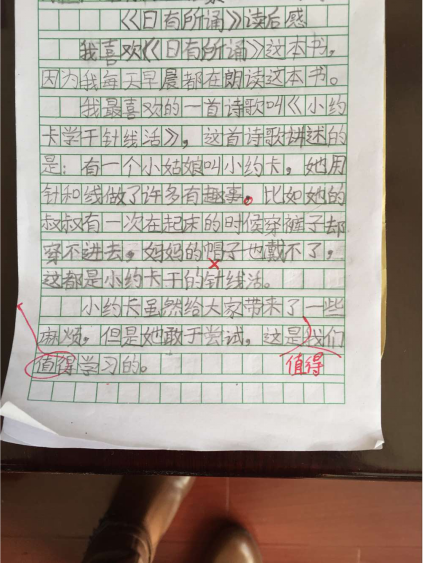 《日有所诵》读后感
我喜欢《日有所诵》这本书，
因为我每天早晨都在朗读这本书。
我最喜欢的一首诗歌叫《小约
卡学干针线活》，这首诗歌讲述的
是：有一个小姑娘叫小约卡，她用
针和线做了许多有趣事。比如她的
叔叔有一次在起床的时候穿裤子却
穿不进去，妈妈的帽子也戴不了，
这都是小约卡干的针线活。
小约卡虽然给大家带来了一些
麻烦，但是她敢于尝试，这是我们
值得学习的。
值得